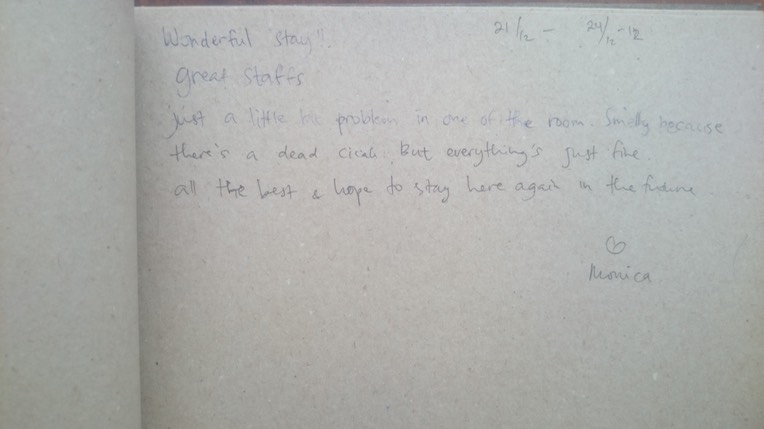 Wonderful stay!! 21/12 - 24/12-12
great staffs
just a little bit problem in one of the room. Smelly because
there's a dead cicak. But everything's just fine.
all the best & hope to stay here again in the future
Monica